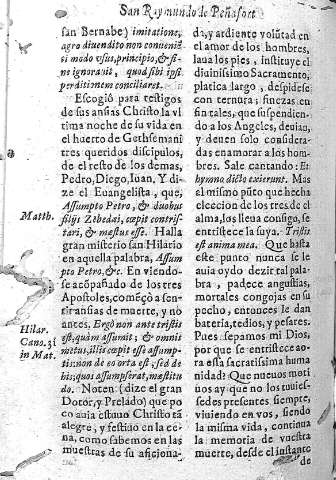 San Raymundo de Peñafort
san Bernabe) imitatione,
agro diuendito non conuenit
si modo vsus, principio, & fi-
ne ignorauit, quod sibi ipsi
perditionem conciliaret.
Escogiò para testigos
de sus ansias Christo la vl
tima noche de su vida en
el huerto de Gethsemani
tres queridos discipulos,
de el resto de los demas,
Pedro, Diego, Iuan. Y di-
ze el Euangelista, que,
Assumpto Petro, & duobus
Matth.
filijs Zebedai, cœpit contris-
tari, & mœstus esse. Halla
gran misterio san Hilario
en aquella palabra, Assum
pto Petro, &c. En viendo-
se acõpañado de los tres
Apostoles, comẽçò a sen-
tir ansias de muerte, y no
Hilar.
Cano. 31
in Mat.
antes. Ergò non ante tristis
est, quàm assumit: & omnis
metus, illis cœpit esse assump-
tis: non de eo orta est, sed de
his, quos assumpserat, mœstitu
do. Noten (dize el gran
Dotor, y Prelado) que po
co auia estauo Christo tã
alegre, y festiuo en la ce-
na, como sabemos en las
muestras de su aficiona-
da, y ardiente volũtad en
el amor de los hombres,
laua los pies, instituye el
diuinissimo Sacramento,
platica largo, despidese
con ternura; finezas en
fin tales, que suspendien-
do a los Angeles, deuian,
y deuen solo considera-
das enamorar a los hom-
bres. Sale cantando: Et
hymno dicto exierunt. Mas
el mismo pũto que hacha
eleccion de los tres de el
alma, los lleua consigo, se
entristece la suya. Tristis
est anima mea. Que hasta
este punto nunca se le
auia oydo dezir tal pala-
bra, padece angustias,
mortales congojas en su
pecho, entonces le dan
bateria, tedios, y pesares.
Pues sepamos mi Dios,
por que se entristece ao-
ra essa sacratissima huma
nidad? Que nueuos moti
uos ay que no los tuuies-
sedes presentes siempre,
viuiendo en vos, siendo
la misma vida, continua
la memoria de vuestra
muerte, desde el instante
de